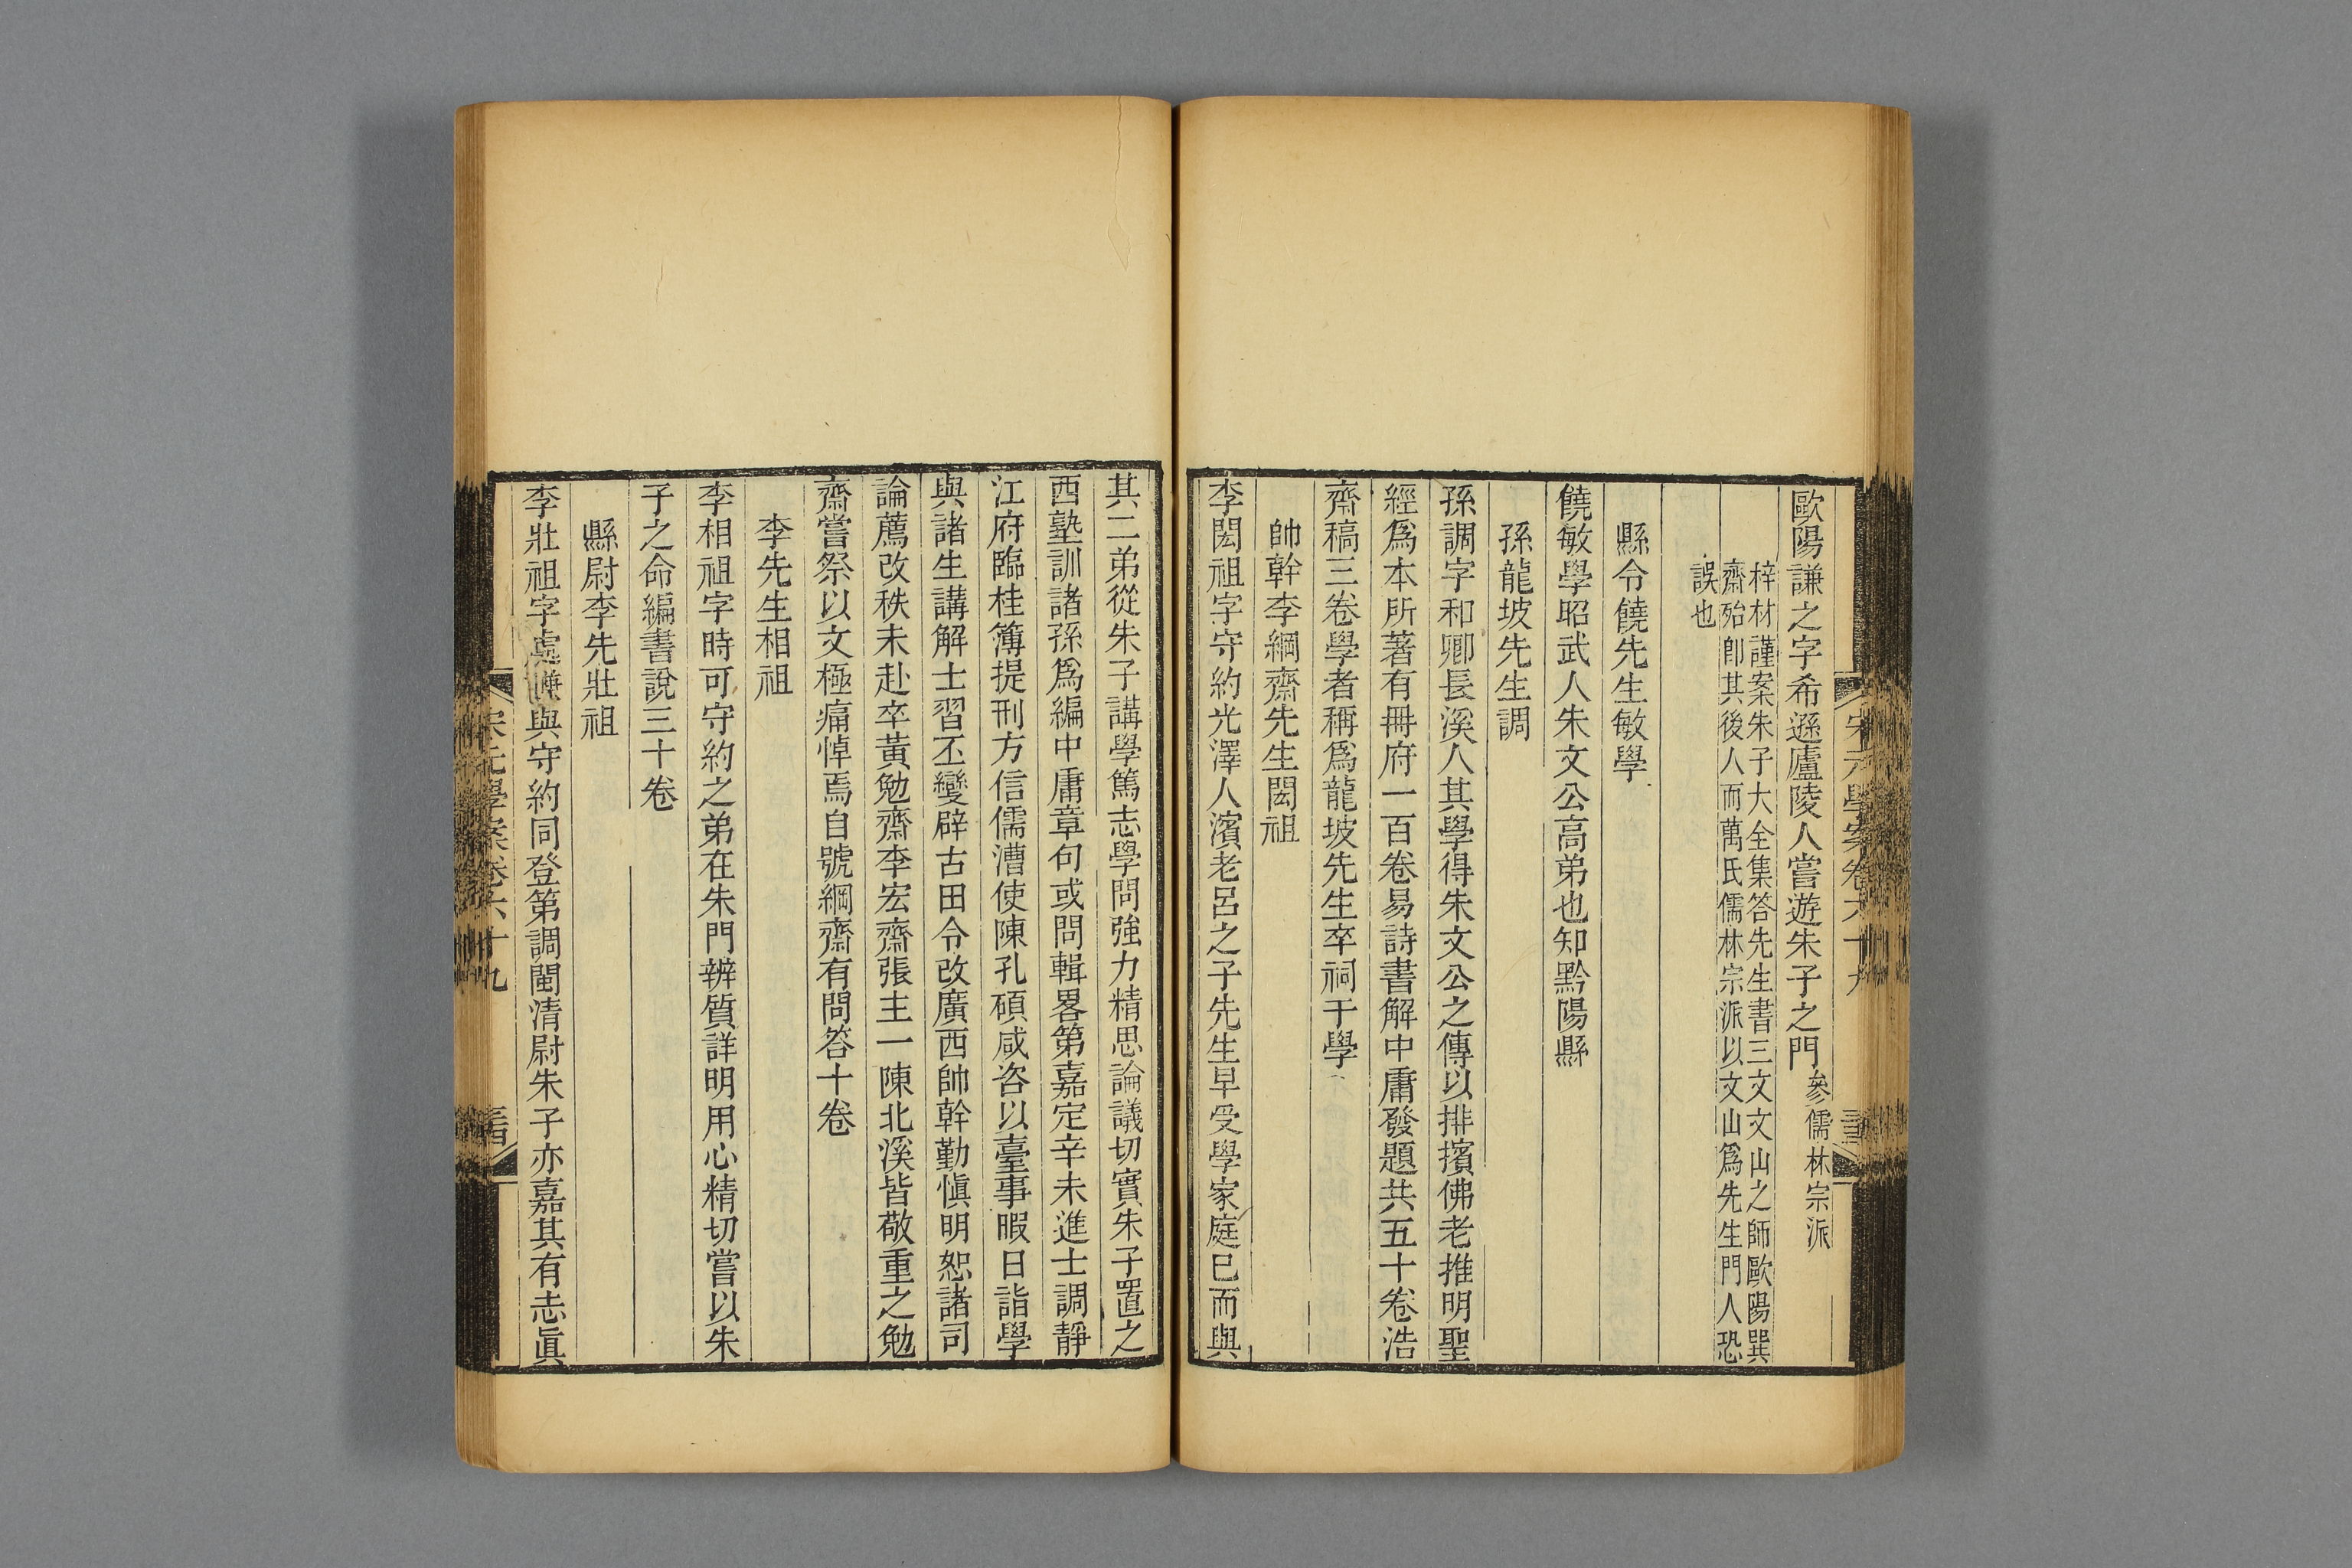 歐陽謙之字希遜廬陵人嘗遊朱子之門參儒林宗派
梓材謹案朱子大全集答先生書三文文山之師歐陽巽
齋殆卽其後人而萬氏儒林宗派以文山爲先生門人恐
誤也
縣令饒先生敏學
饒敏學昭武人朱文公高弟也知黔陽縣
孫龍坡先生調
孫調字和卿長溪人其學得朱文公之傳以排擯佛老推明聖
經爲本所著有冊府一百卷易詩書解中庸發題共五十卷浩
齋稿三卷學者稱爲龍坡先生卒祠于學
帥幹李綱齋先生閎祖
李閎祖字守約光澤人濱老呂之子先生早受學家庭巳而與
其二弟從朱子講學篤志學問強力精思論議切實朱子置之
西塾訓諸孫爲編中庸章句或問輯畧第嘉定辛未進士調靜
江府臨桂簿提刑方信儒漕使陳孔碩咸咨以臺事暇日詣學
與諸生講解士習丕變辟古田令改廣西帥幹勤愼明恕諸司
論薦改秩未赴卒黃勉齋李宏齋張主一陳北溪皆敬重之勉
齋嘗祭以文極痛悼焉自號綱齋有問答十卷
李先生相祖
李相祖字時可守約之弟在朱門辨質詳明用心精切嘗以朱
子之命編書說三十卷
縣尉李先生壯祖
李壯祖字處謙與守約同登第調閩清尉朱子亦嘉其有志眞
宋元學案卷六十九